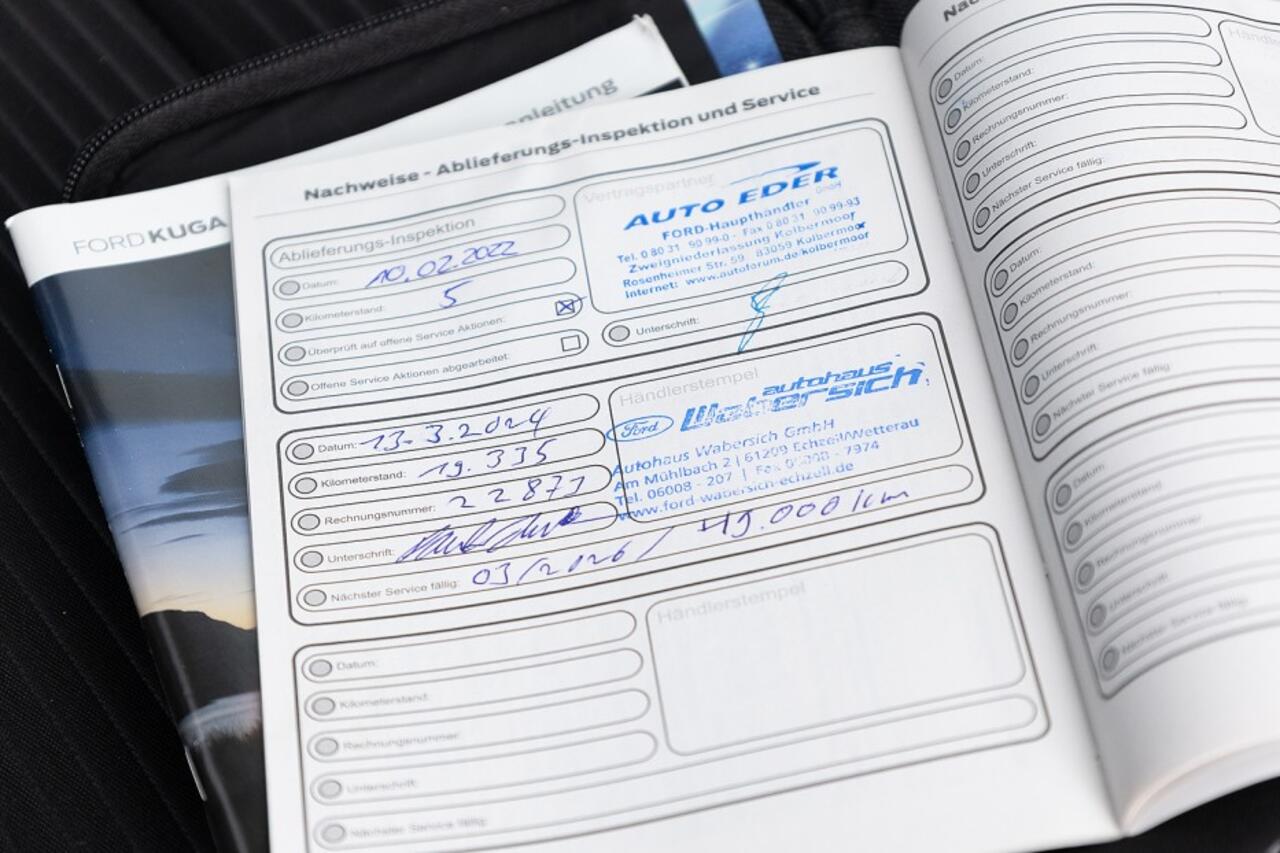 anleitung
FORD KUGA
Nachweise - Ablieferungs-Inspektion und Service
Ablieferungs-Inspektion
Datum: 10.02.2022
Kilometerstand: 5
Überprüft auf offene Service Aktionen:
Offene Service Aktionen abgearbeitet:
Vertragspartner
AUTO EDER
GmbH
FORD-Haupthändler
Tel. 0 80 31 90 99-0 - Fax 0 80 31 90 99-93
Zweigniederlassung Kolbermoor
Rosenheimer Str. 59 83059 Kolbermoor
Internet: www.autoforum.de/kolbermoor
Unterschrift:
Datum: 13.3.2024
Kilometerstand: 19.335
Rechnungsnummer: 22871
Unterschrift:
Nächster Service fällig: 03/2026 / 49.000 km
Händlerstempel
Ford
autohaus
Wabersich
Autohaus Wabersich GmbH
Am Mühlbach 2 | 61209 Echzell/Wetterau
Tel. 06008 - 207 | Fax 06008 - 7974
www.ford-wabersich-echzell.de
Datum:
Kilometerstand:
Rechnungsnummer:
Unterschrift:
Nächster Service fällig:
Händlerstempel
Datum:
Kilometerstand:
Rechnungsnummer:
Unterschrift:
Nächster Service fällig:
Datum:
Kilometerstand:
Rechnungsnummer:
Unterschrift:
Nächster Service fällig:
Datum:
Kilometerstand:
Rechnungsnummer:
Unterschrift:
Nächster Service fällig: